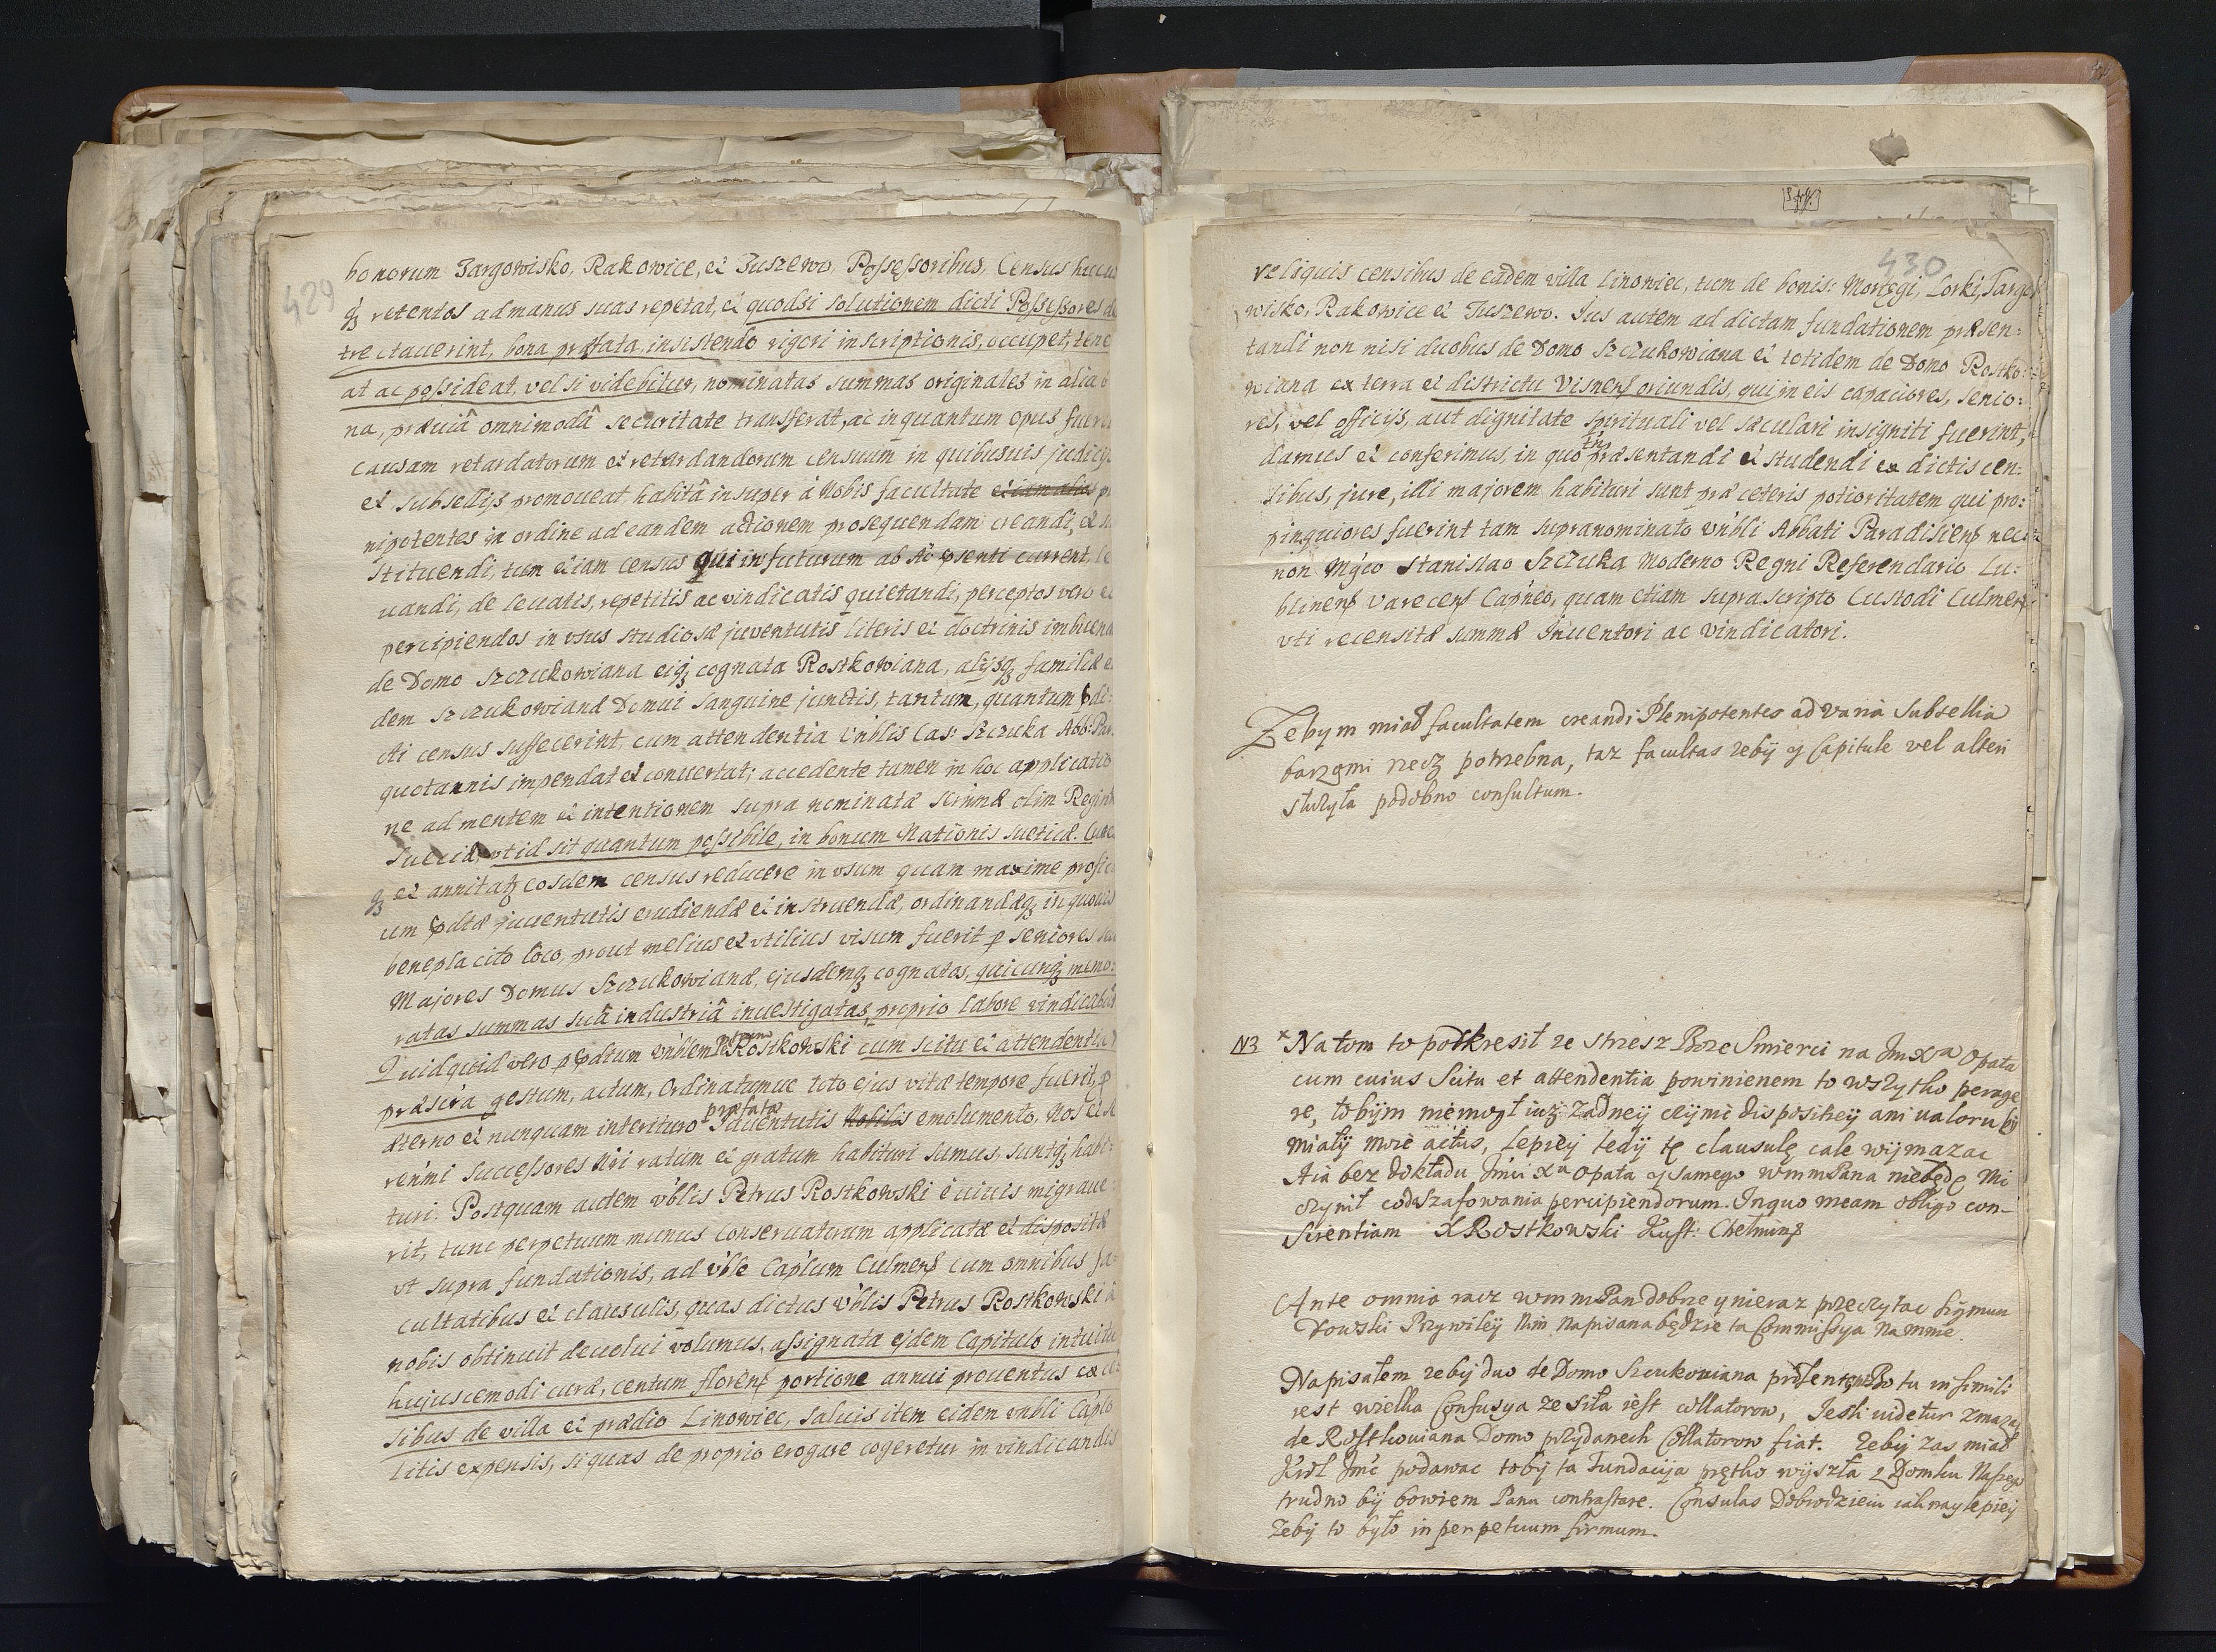 429
bonorum Targowisko, Rakowice, et Tuszewo, Possessoribus, Census hucus
q; retentos ad manus suas repetat, et quodsi solutionem dicti Possessores de
trectauerint, bona præfata, insistendo rigori inscriptionis, occupet, tene
at ac possideat, vel si videbitur, nominatas summas originales in alia bo
na, præuiâ omnimodâ securitate transferat, ac inquantum opus fuerit
causam retardatorum et retardandorum censuum in quibusuis judicijs
et subsellijs promoueat, habitâ insuper à Nobis facultate etiam alios
nipotentes in ordine ad eandem actionem prosequendam creandi, et su
stituendi, tum etiam census qui in futurum ab hoc psenti current, le
uandi, de leuatis, repetitis ac vindicatis quietandi, perceptos vero et
percipiendos in vsus studiosæ juventutis literis et doctrinis imbuenda
de Domo Szczukowiana eiq; cognata Rostkowiana, alijsq; familiæ e
dem Szczukowianæ Domui sanguine junctis, tantum, quantum pdi:
cti census suffecerint, cum attendentia Vnblis Cas: Szczuka Abb: Par
quotannis impendat et conuertat; accedente tamen in hoc applicatio
ne ad mentem et intentionem supra nominatæ Sermæ olim Reginæ
Sueciæ, vt id sit quantum possibile, in bonum Nationis Sueticæ. Curet
q; et annitatq; eosdem census reducere in vsum quam maxime profic
uum pdtæ juuentutis erudiendæ et instruendæ, ordinandæq; in quouis
beneplacito loco, prout melius et vtilius visum fuerit p seniores seu
Majores Domus Szczukowianæ, ejusdemq; cognatos, quicunq; memo:
ratas summas suâ industriâ inuestigatas, proprio labore vindicabunt
Quidquid vero p pdtum Vnblem Petrum Rostkowski cum scitu et attendentia
præscira gestum, actum, Ordinatumue toto ejus vitæ tempore fuerit, p
æterno et nunquam interituro præfatæ Juuentutis Nobilis emolumento, Nos et Se
renmi Successores Nri ratum et gratum habituri sumus, suntq; habi:
turi. Postquam autem Vblis Petrus Rostkowski è uiuis migraue
rit, tunc perpetuum munus Conseruatorum applicatæ et dispositæ
vt supra fundationis, ad Vble Caplum Culmens cum omnibus fa
cultatibus et clausulis, quas dictus Vblis Petrus Rostkowski à
nobis obtinuit deuolui volumus, assignata ejdem Capitulo intuitu
hujuscemodi curæ, centum florens portione annui prouentus ex ce:
sibus de villa et prædio Linowiec, saluis item eidem vnbli Caplo
litis expensis, si quas de proprio erogare cogeretur in vindicandis
430
reliquis censibus de eâdem villa Linowiec, tum de bonis: Morţgi, Lorki, Targo
wisko, Rakowice et Tuszewo. Jus autem ad dictam fundationem præsen:
tandi non nisi duobus de Domo Szczukowiana et totidem de Domo Rostko:
wiana ex terra et districtu Visnens oriundis, qui in eis capaciores, senio:
res, vel officijs, aut dignitate spirituali vel sæculari insigniti fuerint,
damus et conferimus, in quo tn præsentandi et studendi ex dictis cen:
sibus, jure, illi majorem habituri sunt præ ceteris potioritatem qui pro:
pinquiores fuerint tam supranominato vnbli Abbati Paradisiens nec
non Mgco Stanislao Szczuka Moderno Regni Referendario Lu:
blinens Varecens Capneo, quam etiam suprascripto Custodi Culmens
vti recensitæ summæ Inuentori ac vindicatori.
Zebym miał facultatem creandi Plenipotentes ad varia Subsellia
barzomi rzecz potrzebna, taz facultas zeby y Capitule vel alteri
słuzyła podobno consultum.
N3 × Na tom to potkresił ze strzesz Boze Smierci na Jmci Xa Opata
cum cuius Scitu et attendentia powinienem to wszytko perage
re, tobym niemogł iuz zadney czynic dispositiey ani ualoru by
miały moie actus, lepiey tedy tę clausulę cale wymazac
A ia bez dokładu Jmci Xa Opata y samego wmmPana niebędę ni
czynił codo szafowania percipiendorum. In quo meam obligo con-
scientiam XRostkowski Kust: Chełmins
Ante omnia racz wmmPan dobrze y nieraz przeczytac Sijmun
towski Przywiley nim napisana będzie ta Commissya na mnie.
Napisałem zeby duo de Domo Szczukowiana præsentent Bo tu in simili
iest wielka Confusya ze siła iest collatorow, Jesli uidetur zmazaę
de Rostkouiana Domo przydanech Collatorow fiat. Zeby zas miał
Krol Jmc podawac toby ta Fundacija prętko wyszła z Domku Naszego
trudno by bowiem Panu contrastare. Consulas Dobrodzieiu iak naylepiey
Zeby to było in perpetuum firmum.